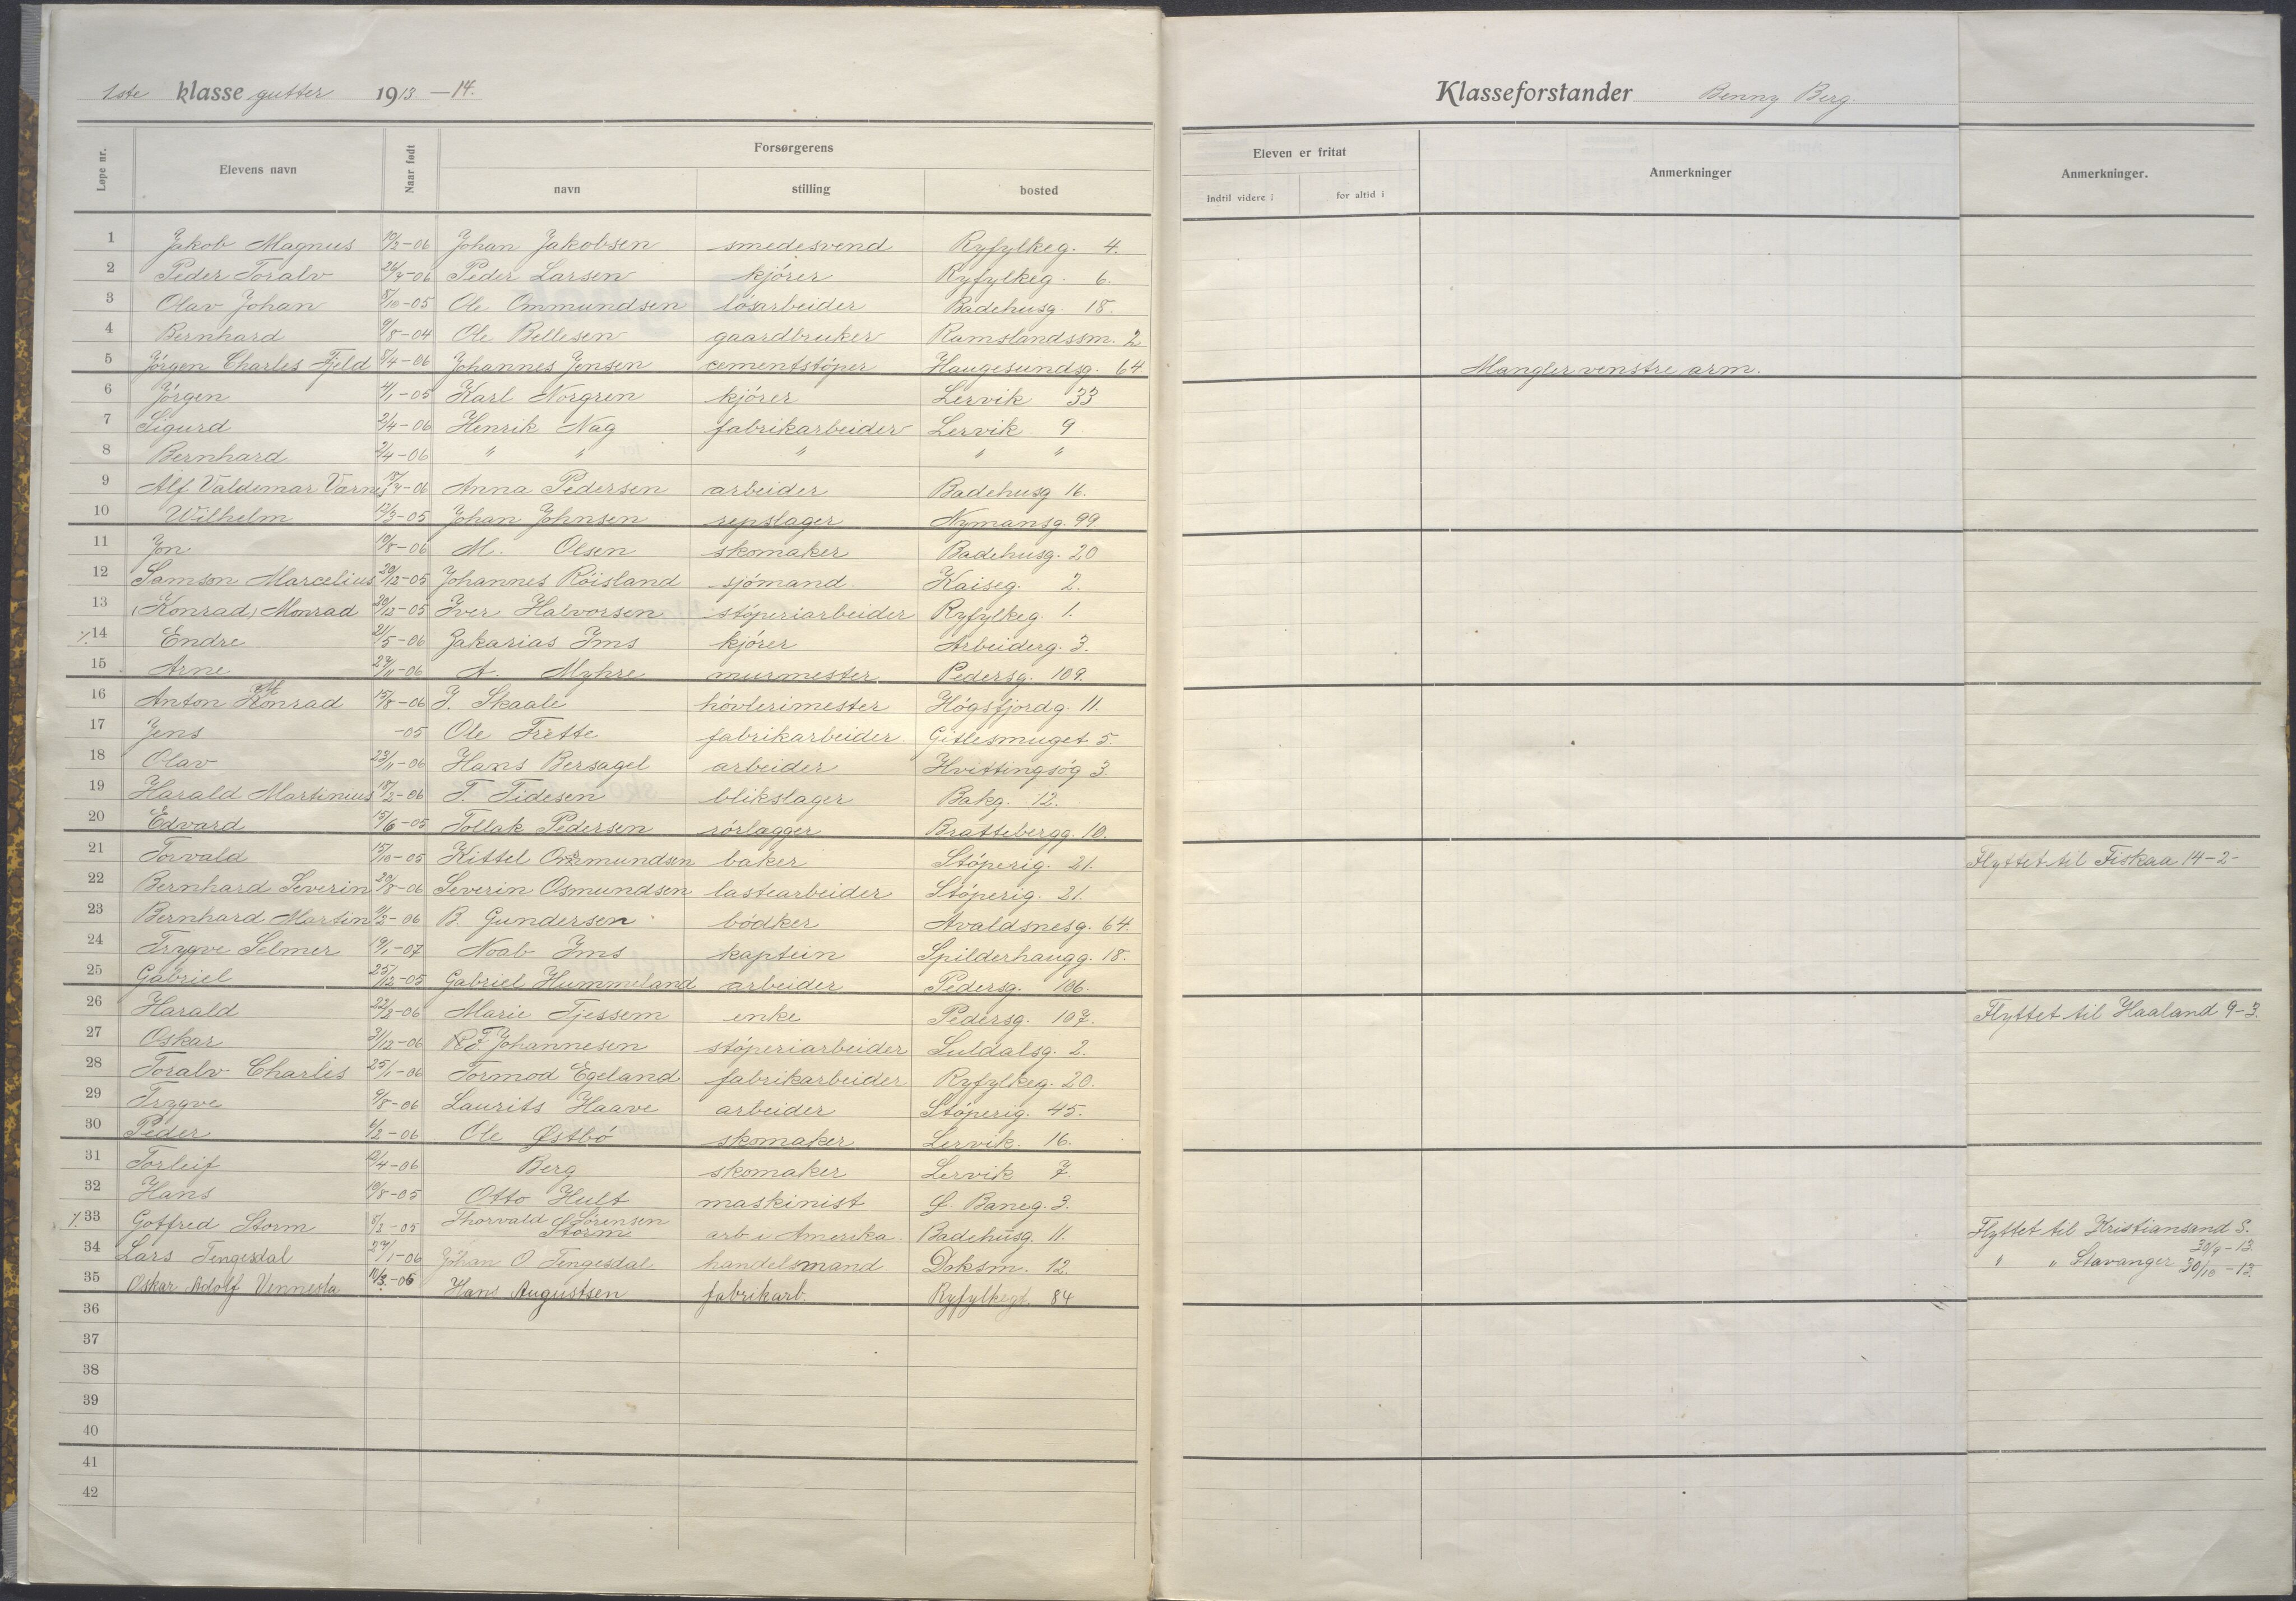 1ste klasse gutter 1913 - 14.
Klasseforstander Benny Berg.
Løpe nr. Elevens navn Naar født Forsørgerens
navn stilling bosted
Eleven er fritat Anmerkninger Anmerkninger.
Indtil videre i for altid i
1 Jakob Magnus 10/2-06 Johan Jakobsen smedesvend Ryfylkeg. 4.
2 Peder Toralv Peder Larsen kjörer Ryfylkeg. 6.
3 Olav Johan 8/10-05 Ole Ommundsen lösarbeider Badehusg. 18.
4 Bernhard 9/8-04 Ole Bellesen gaardbruker Ramslandssm. 2
5 Jörgen Charles Fjeld 8/4-06 Johannes Jensen cementstöper Haugesundsg. 64 Mangler venstre arm.
6 Jörgen 4/1-05 Karl Norgren kjörer Lervik 33
7 Sigurd 2/4-06 Henrik Nag fabrikarbeider Lervik 9
8 Bernhard 2/4-06 " " " " "
9 Alf Valdemar Varnes Anna Pedersen arbeider Badehusg 16.
10 Wilhelm 12/3-05 Johan Johnsen repslager Nymansg. 99.
11 Jon 10/8-06 M. Olsen skomaker Badehusg. 20
12 Samson Marcelius 20/12-05 Johannes Röisland sjömand. Kaiseg. 2.
13 (Konrad) Monrad 30/12-05 Iver Halvorsen stöperiarbeider Ryfylkeg. 1.
14 Endre 21/5-06 Zakarias Ims kjörer Arbeiderg. 3.
15 Arne 27/11-06 A. Myhre murmester Pedersg. 109.
16 Anton Konrad 15/8-06 J. Skaale hövlerimester Högsfjordg. 11.
17 Jens -05 Ole Frette fabrikarbeider. Gitlesmuget 5.
18 Olav 23/11-06 Hans Bersagel arbeider Hvittingsög 3.
19 Harald Martinius 18/2-06 T. Tidesen blikslager Bakg. 12.
20 Edvard 15/6-05 Tollak Pedersen rörlægger Brattebergg. 10.
21 Torvald 15/10-05 Kittel Ommundsen baker Stöperig. 21. Flyttet til Fiskaa 14-2-
22 Bernhard Severin 20/8-06 Severin Osmundsen lastearbeider Stöperig. 21.
23 Bernhard Martin R. Gundersen bödker Avaldsnesg. 64.
24 Trygve Selmer 19/1-07 Noab Ims kaptein Spilderhaugg. 18.
25 Gabriel 25/12-05 Gabriel Hummeland arbeider Pedersg. 106.
26 Harald 22/2-06 Marie Tjessem enke Pedersg. 107. Flyttet til Haaland 9-3.
27 Oskar 3/12-06 R. F. Johannesen stöperiarbeider Suldalsg. 2.
28 Toralv Charles 25/1-06 Tormod Egeland fabrikarbeider Ryfylkeg. 20.
29 Trygve 9/8-06 Laurits Haave arbeider Stöperig. 45.
30 Peder 6/2-06 Ole Østbö skomaker Lervik. 16.
31 Torleif Berg skomaker Lervik 7.
32 Hans 10/8-05 Otto Hult maskinist Ø. Baneg. 3.
33 Gotfred Storm Thorvald Sörensen Storm arb. i Amerika. Badehusg. 11. Flyttet til Kristiansand S. 30/9-13.
34 Lars Tengesdal 27/1-06 Johan O. Tengesdal handelsmand. Doksm. 12. " " Stavanger 30/10-13.
35 Oskar Adolf Vennesla Hans Augustsen fabrikarb. Ryfylkegt. 84
36
37
38
39
40
41
42